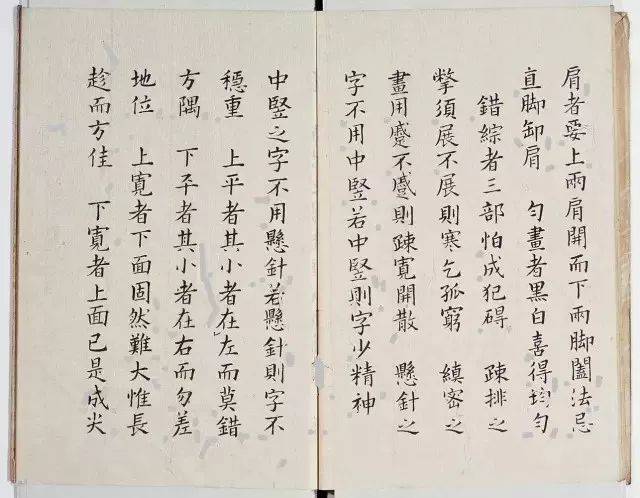 肩者要上兩肩開而下兩脚闔法忌
直脚卸肩　勻畫者黑白喜得均勻
錯綜者三部怕成犯碍　疎排之
撆須展不展則寒乞孤窮　縝密之
畫用蹙不蹙則疎寛開散　懸針之
字不用中竪若中竪則字少精神
中竪之字不用懸針若懸針則字不
穩重　上平者其小者在左而莫錯
方隅　下平者其小者在右而勿差
地位　上寛者下面固然難大惟長
趁而方佳　下寛者上面已是成尖